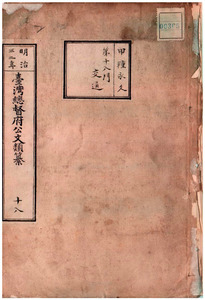 甲種永久
第十八門
交通
明治
臺灣總督府公文類纂
十八